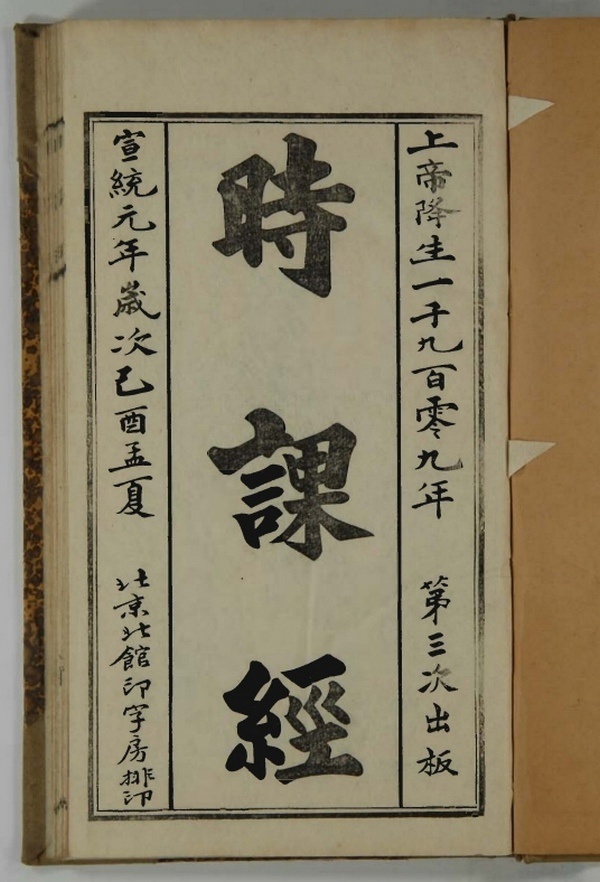 上帝降生一千九百零九年 第三次出板
時課經
宣統元年歲次己酉孟夏 北京北館印字房排印